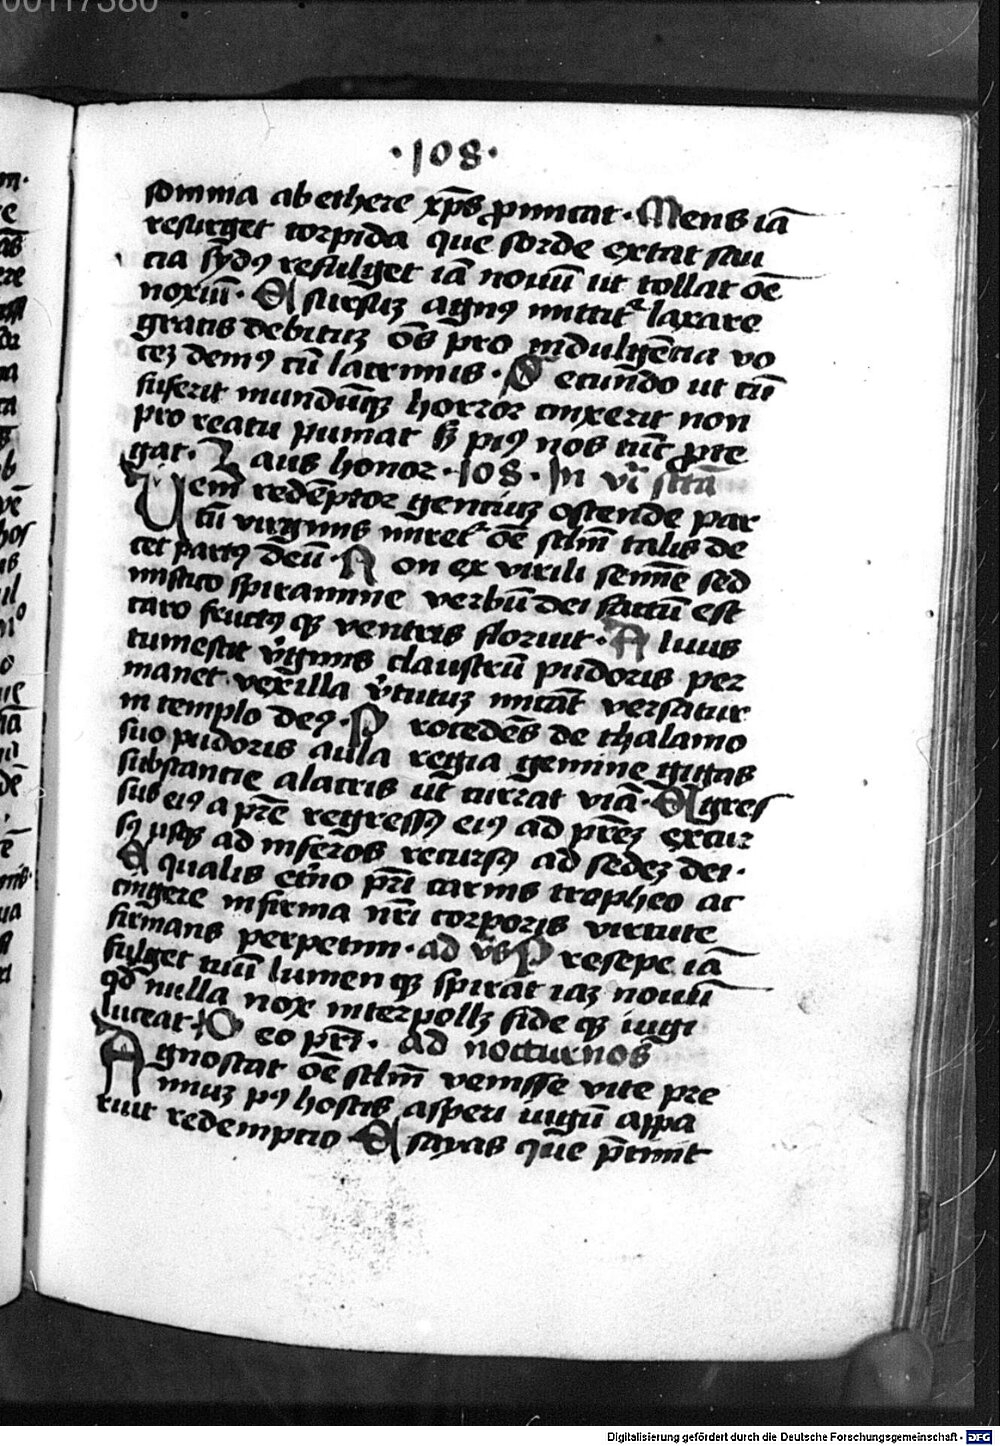 00117380
·108·
somma ab ethere xp̄s ꝓmicat · Mens iā
resurget torpida que sorde extat sau
cia sydꝰ refulget iā nouū ut tollat oē
noxiū · E sursuꝫ agnꝰ mittit᷑ laxare
gratis debituꝫ oēs pro indulgēcia vo
ceꝫ demꝰ cū lacrimis · S ecundo ut cū
fulserit mundūqꝫ horror cinxerit non
pro reatu puniat sꝫ piꝰ nos tūc ꝓte
gat · L aus honor · 108 · In vi
Veni redēptor gentiuꝫ ostende par
tū virginis miret᷑ oē sclm̄ talis de
cet partꝰ deū · N on ex virili semīe sed
mistico spiramine verbū dei factū est
caro fructꝰ qꝫ ventris floruit · A luus
tumescit v̓ginis claustrū pudoris per
manet vexilla v̓tutuꝫ micāt versatur
in templo deꝰ · P rocedēs de thalamo
suo pudoris aula regia gemine gigas
substancie alacris ut currat viā · E gres
sus eiꝰ a pr̄e regressꝰ eiꝰ ad pr̄eꝫ excur
sꝰ usqꝫ ad inferos recursꝰ ad sedeꝫ dei ·
E qualis et̓no pr̄i carnis tropheo ac
cingere infirma nr̄i corporis virtute
firmans perpetim · ad v̄s P resepe iā
fulget tuū lumen qꝫ spirat iaꝫ nouū
qd̄ nulla nox interpollꝫ fide qꝫ iugi
luceat · D eo pr̄i · ad nocturnos
Agnoscat oē sclm̄ venisse vite pre
miuꝫ pꝰ hostis asperi iugū appa
ruit redemptio · E sayas que p̄cinit
Digitalisierung gefördert durch die Deutsche Forschungsgemeinschaft - DFG